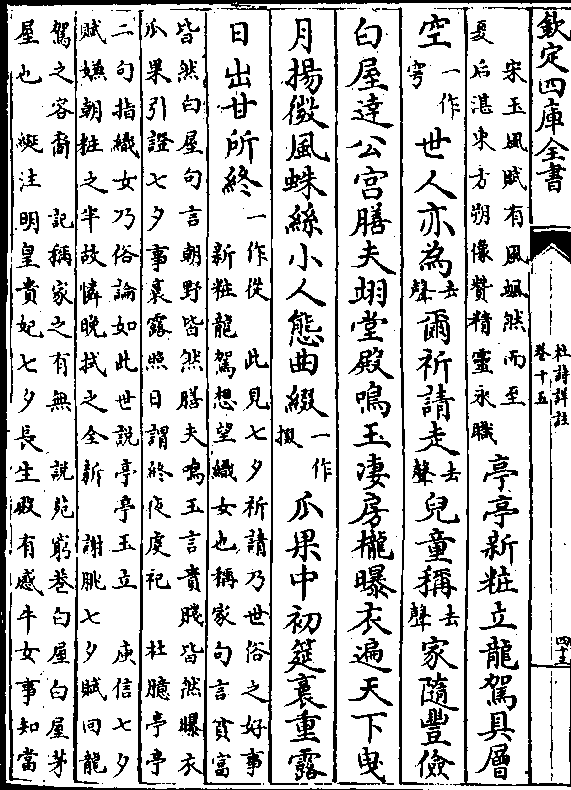 欽定四庫全書
杜詩詳註
卷十五
四十三
宋玉風賦有風颯然而至
夏侯湛東方朔像贊精靈永戢
亭亭新粧立龍駕具層
空
一作
穹
世人亦為
去
聲
爾祈請走
去
聲
兒童稱
去
聲
家隨豐儉
白屋達公宮膳夫翊堂殿鳴玉凄房櫳曝衣遍天下曳
月揚微風蛛絲小人態曲綴
一作
掇
瓜果中初筵裛重露
日出甘所終
一作從 此見七夕祈請乃世俗之好事
新粧龍駕想望織女也稱家句言貧富
皆然白屋句言朝野皆然膳夫鳴玉言貴賤皆然曝衣
瓜果引證七夕事裛露照日謂終夜虔祀 杜臆亭亭
二句指織女乃俗論如此世說亭亭玉立 庾信七夕
賦嫌朝粧之半故憐晚拭之全新 謝朓七夕賦回龍
駕之容裔 記稱家之有無 說苑窮巷白屋白屋茅
屋也 綖注明皇貴妃七夕長生殿有感牛女事知當